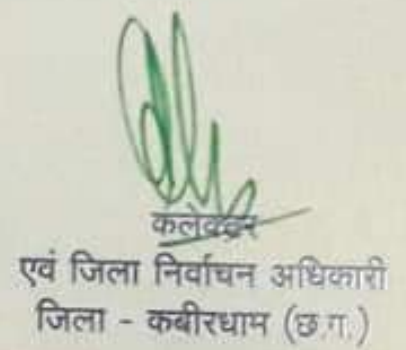 कलेक्टर
एवं जिला निर्वाचन अधिकारी
जिला - कबीरधाम (छ.ग.)